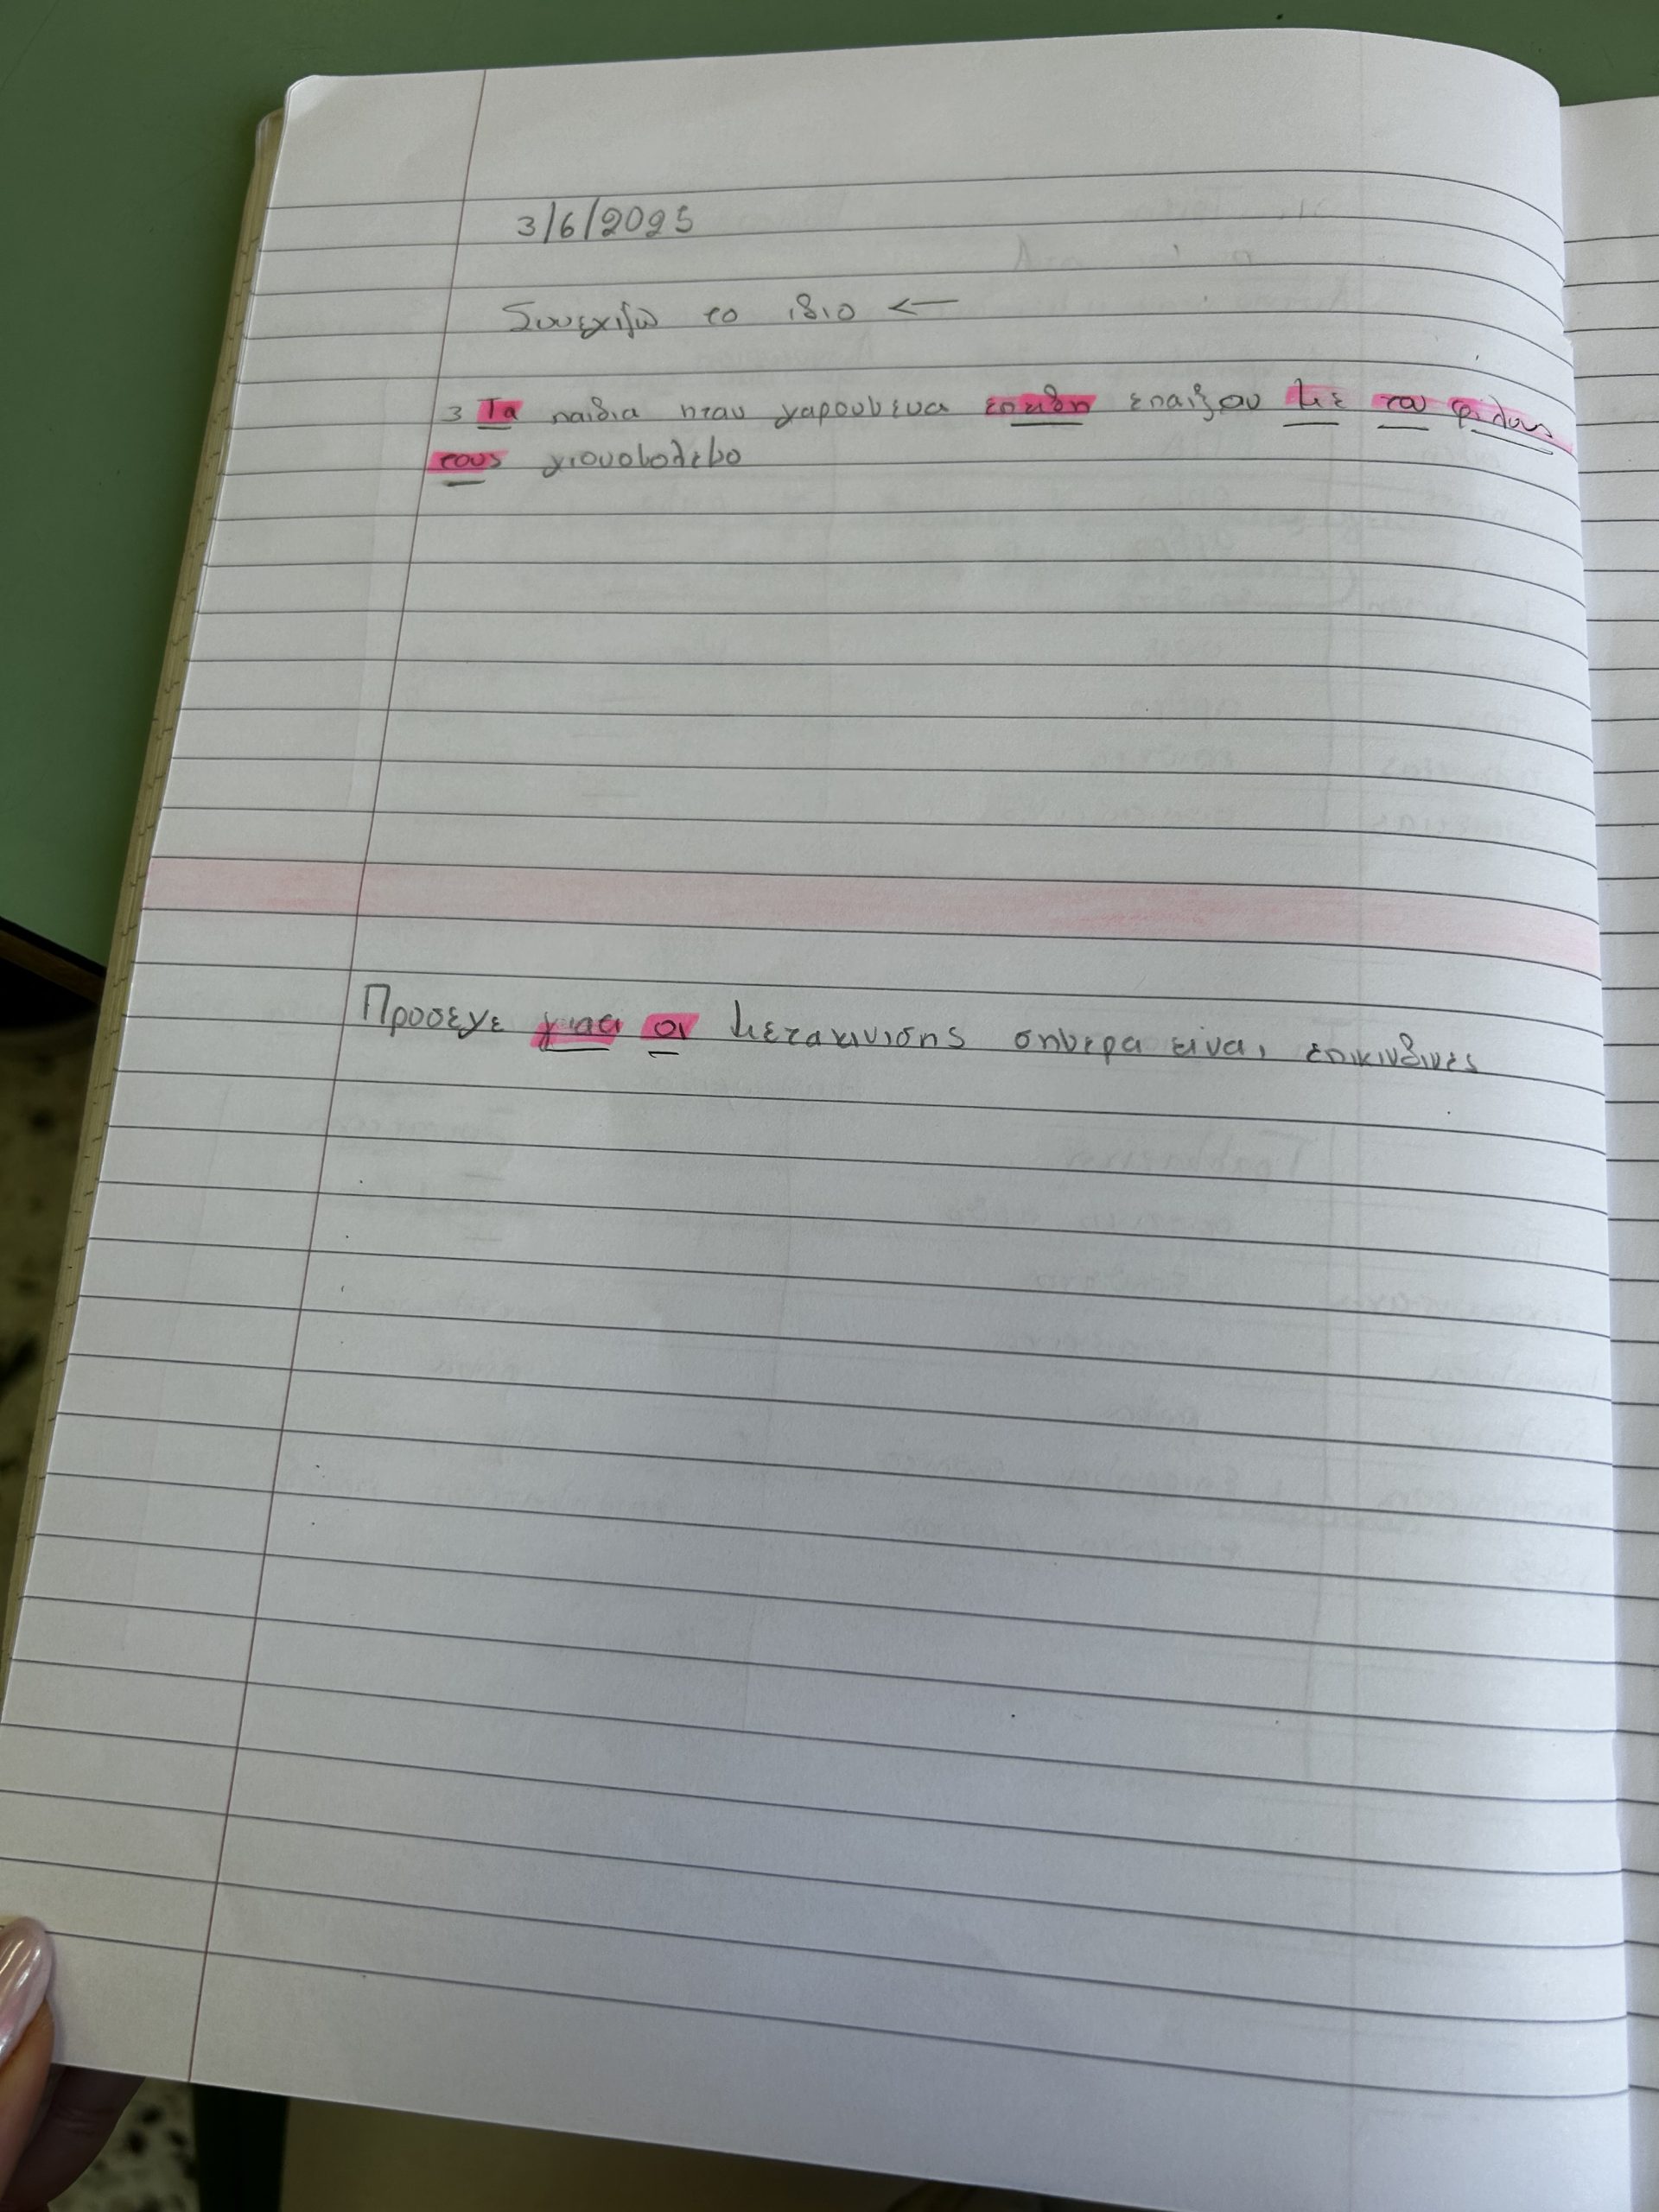 3/6/2025
Συνεχιζω το ιδιο ←
3 Τα παιδια ηταν χαρουμενα επειδη επαιξαν με του φιλους
τους χιονοπολεμο
Προσεχε γιατι οι μετακινισης σημερα είναι επικινδινες